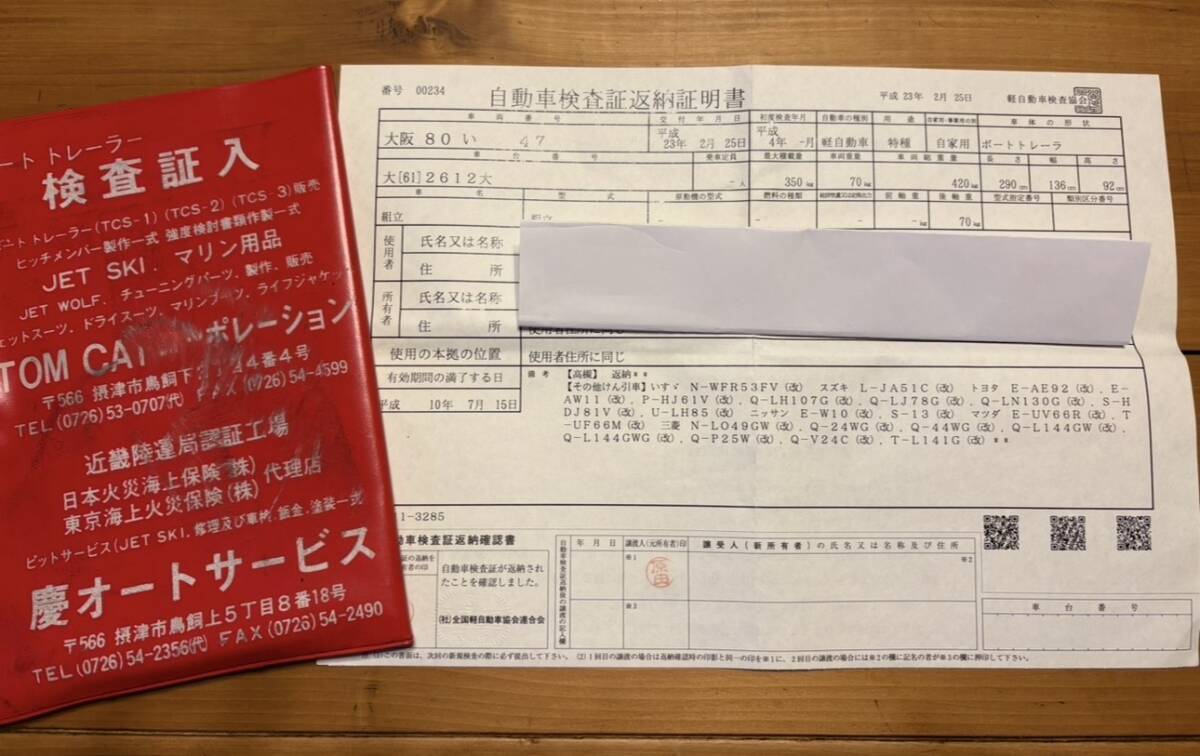 ート トレーラー
検査証入
ート トレーラー(TCS-1)(TCS-2)(TCS-3)販売
ヒッチメンバー製作一式 強度検討書類作製一式
JET SKI. マリン用品
JET WOLF. チューニングパーツ、製作、販売
ェットスーツ、ドライスーツ、マリンブーツ、ライフジャケット
TOM CA ポレーション
〒566 摂津市鳥飼下 4番4号
TEL(0726)53-0707(代) FAX(0726)54-4599
近畿陸運局認証工場
日本火災海上保険(株)
東京海上火災保険(株)
代理店
ピットサービス(JET SKI.修理及び車検、鈑金、塗装一式
慶オートサービス
〒566 摂津市鳥飼上5丁目8番18号
TEL(0726)54-2356(代) FAX(0726)54-2490
番号 00234
自動車検査証返納証明書
平成 23年 2月 25日
軽自動車検査協会
車両番号 交付年月日 初度検査年月 自動車の種別 用途 自家用・事業用の別 車体の形状
大阪 80 い 47 平成 23年 2月 25日 平成 4年 -月 軽自動車 特種 自家用 ボートトレーラ
車台番号 乗車定員 最大積載量 車両重量 車両総重量 長さ 幅 高さ
大[61]2612大 -人 350kg 70kg 420kg 290cm 136cm 92cm
車名 型式 原動機の型式 燃料の種類 前軸重 後軸重 型式指定番号 類別区分番号
組立 組立 - - - -kg 70kg
使用者 氏名又は名称
住所
所有者 氏名又は名称
住所 使用者住所に同じ
使用の本拠の位置 使用者住所に同じ
有効期間の満了する日
平成 10年 7月 15日
備考 【高槻】 返納**
【その他けん引車】いすゞ N-WFR53FV(改) スズキ L-JA51C(改) トヨタ E-AE92(改), E-
AW11(改), P-HJ61V(改), Q-LH107G(改), Q-LJ78G(改), Q-LN130G(改), S-H
DJ81V(改), U-LH85(改) ニッサン E-W10(改), S-13(改) マツダ E-UV66R(改), T
-UF66M(改) 三菱 N-LO49GW(改), Q-24WG(改), Q-44WG(改), Q-L144GW(改),
Q-L144GWG(改), Q-P25W(改), Q-V24C(改), T-L141G(改)**
1-3285
動車検査証返納確認書
証の返納を
者の印
自動車検査証が返納され
たことを確認しました。
(社)全国軽自動車協会連合会
自動車検査証返納後の譲渡の記入欄
年月日 譲渡人(元所有者)印 譲受人(新所有者)の氏名又は名称及び住所
※1 ※2
原田
※3
車台番号
(1)この書面は、次回の新規検査の際に必ず提出して下さい。 (2)1回目の譲渡の場合は返納確認時の印影と同一の印を※1に、2回目の譲渡の場合には※2の欄に記名の者が※3の欄に押印して下さい。